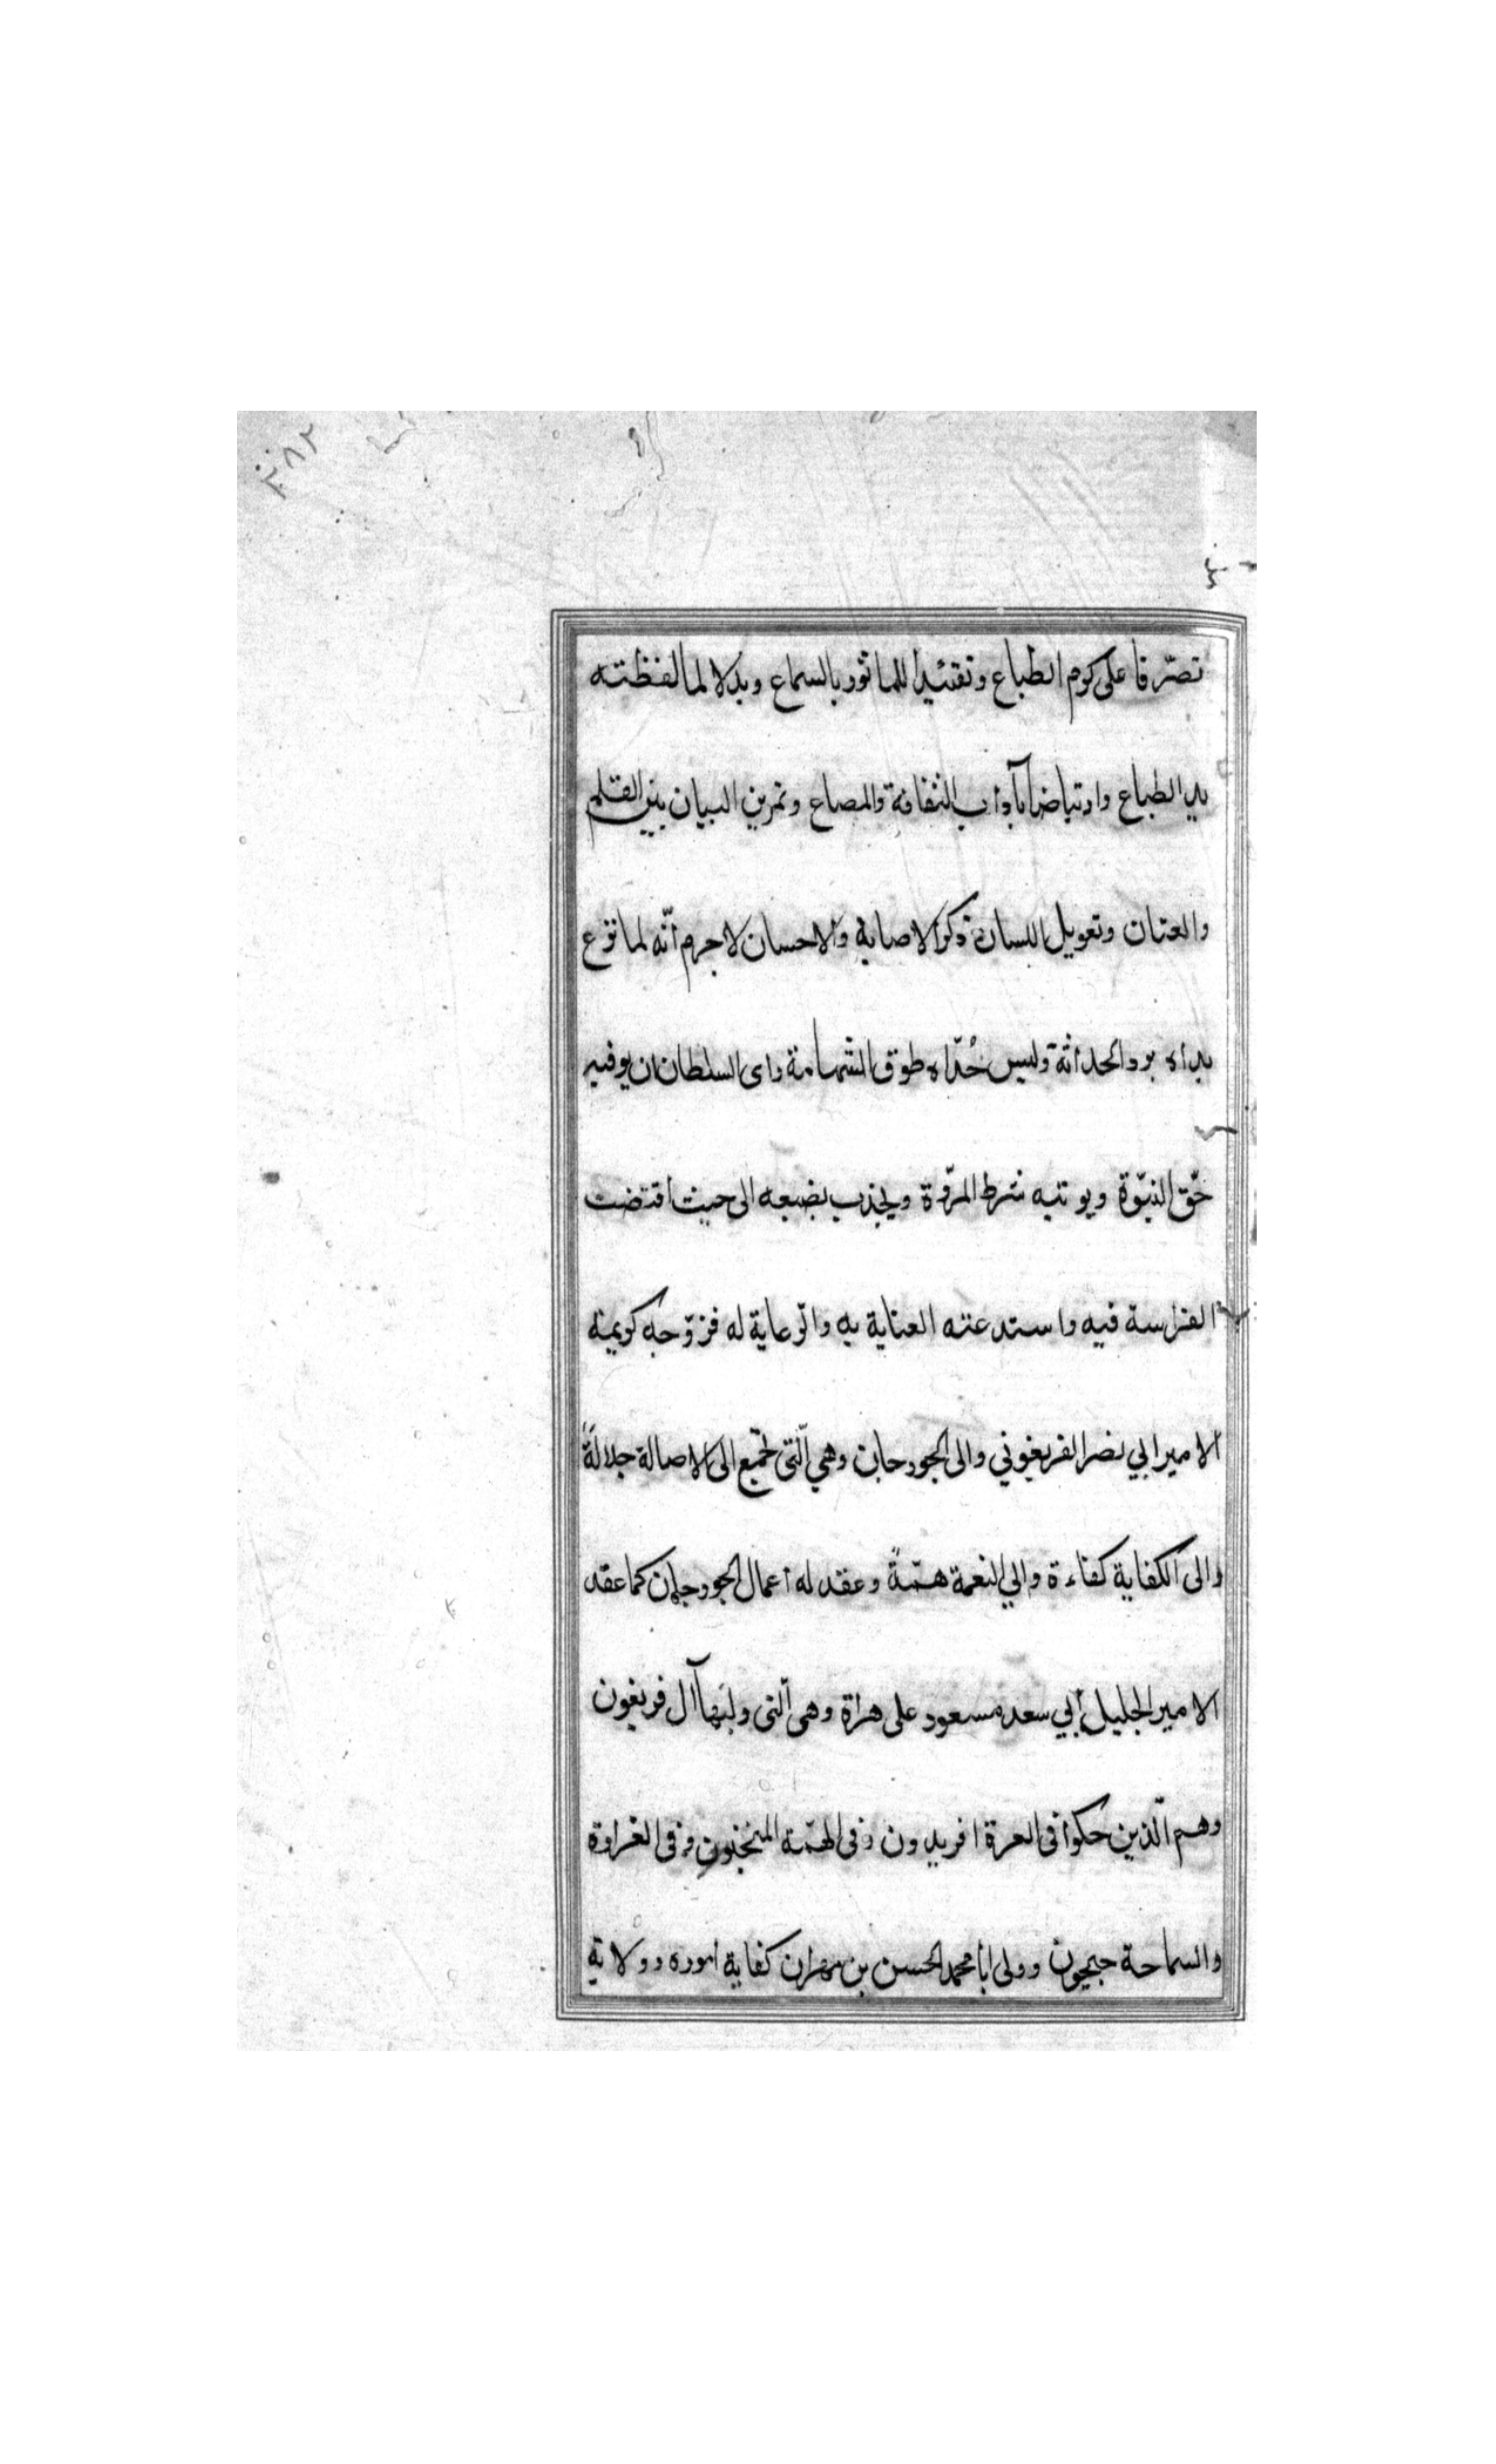 ٢٨٢
تصرّفا على كرم الطباع وتقئيدا للماثور بالسماع وبدلا لما لفظته
يد الطباع وارتياضا بآداب الثقافة والمصاع وتمرين البيان بين القلم
والعنان وتعويل اللسان ذكر الاصابة والاحسان لا جرم أنّه لما نزع
بداه برد الحداثة وليس حُدّاه طوق الشهامة راى السلطان ان يوفيه
حّق النبّوة ويوتيه شرط المرّوة ويجذب بضبعه الى حيث اقتضت
الفراسة فيه واستدعته العناية به والرّعاية له فزوّجه كريمة
الامير ابي نصر الفريغوني والى الجورجان وهي الّتى تجمّع الى الاصالة جلالةً
والى الكفاية كفاءة والي النعمة همّةً وعقد له أعمال الجورجان كما عقد
الامير الجليل أبي سعد مسعود على هراة وهى الّتى وليها آل فريغون
وهم الّذين حكوا فى العزة افريدون وفى الهمّة المنجنون وفى الغزارة
والسماحة جيحون وولى ابا محمد الحسن بن مهران كفاية اموره وولاية